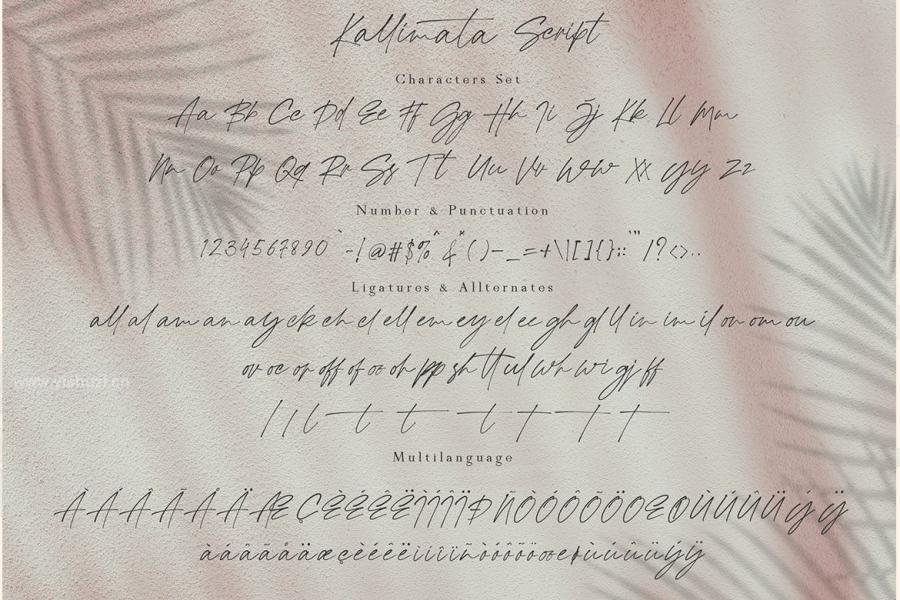 Kallimata Script
Characters Set
Aa Bb Cc Dd Ee Ff Gg Hh Ii Jj Kk Ll Mm
Nn Oo Pp Qq Rr Ss Tt Uu Vv Ww Xx Yy Zz
Number & Punctuation
1234567890 `-!@#$%^&*()-_=+\|[]{};:'"/?<>,.
Ligatures & Allternates
all al am an ay ck ch cl ell em ey el ec gh gl ll in im il on om ou
ov oc or off of oo oh pp sh tt ul wh wi gj ff
Multilanguage
ÀÁÂÃÅÄÆÇÈÉÊËÌÍÎÏÐÑÒÓÔÕÖŒØÙÚÛÜÝŸ
àáâãåäæçèéêëìíîïñòóôõöœøùúûüýÿ
www.yishuzi.cn